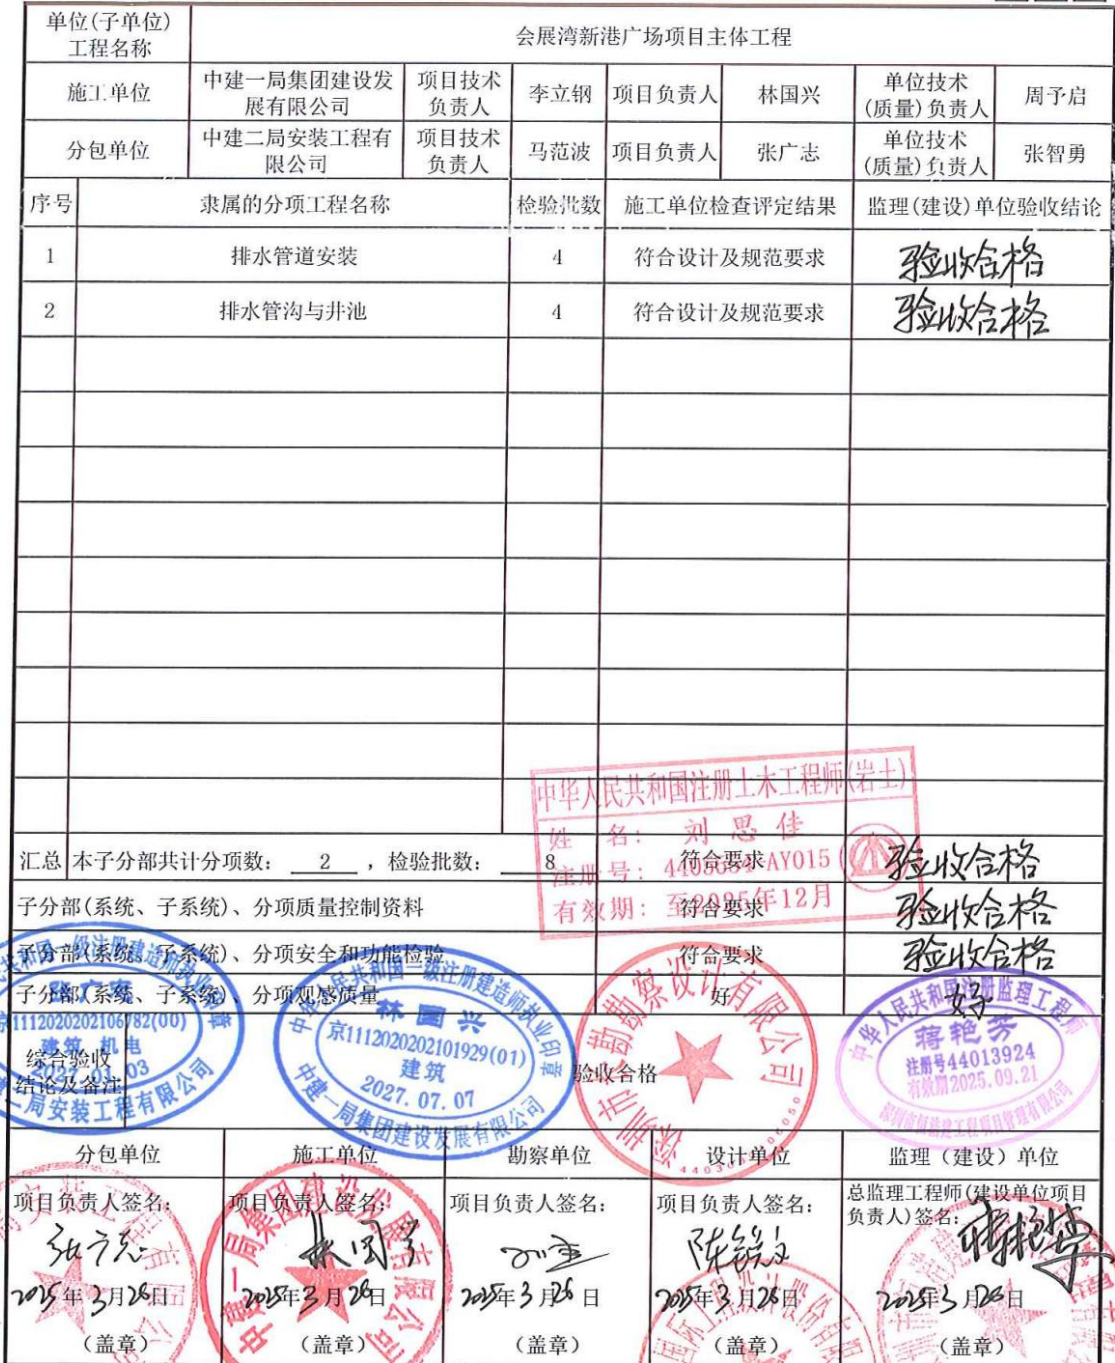 单位(子单位)
工程名称
会展湾新港广场项目主体工程
施工单位
中建一局集团建设发
展有限公司
项目技术
负责人
李立钢
项目负责人
林国兴
单位技术
(质量)负责人
周予启
分包单位
中建二局安装工程有
限公司
项目技术
负责人
马范波
项目负责人
张广志
单位技术
(质量)负责人
张智勇
序号
隶属的分项工程名称
检验批数
施工单位检查评定结果
监理(建设)单位验收结论
1
排水管道安装
4
符合设计及规范要求
验收合格
2
排水管沟与井池
4
符合设计及规范要求
验收合格
中华人民共和国注册土木工程师(岩土)
姓 名: 刘思佳
注册号:
AY015
有效期: 至2025年12月
汇总
本子分部共计分项数: 2 ,检验批数: 8
符合要求
验收合格
子分部(系统、子系统)、分项质量控制资料
符合要求
验收合格
子分部(系统、子系统)、分项安全和功能检验
符合要求
验收合格
子分部(系统、子系统)、分项观感质量
好
好
综合验收
结论及备注
验收合格
建筑 机电
二局安装工程有限公司
中华人民共和国一级注册建造师执业印章
林国兴
京1112020202101929(01)
建筑
2027.07.07
中建一局集团建设发展有限公司
勘察设计有限公司
中华人民共和国注册监理工程师
蒋艳芳
注册号44013924
有效期2025.09.21
分包单位
施工单位
勘察单位
设计单位
监理（建设）单位
项目负责人签名:
项目负责人签名:
项目负责人签名:
项目负责人签名:
总监理工程师(建设单位项目
负责人)签名:
张广志
林国兴
2025年3月26日
2025年3月26日
2025年3月26日
2025年3月26日
2025年3月26日
(盖章)
(盖章)
(盖章)
(盖章)
(盖章)